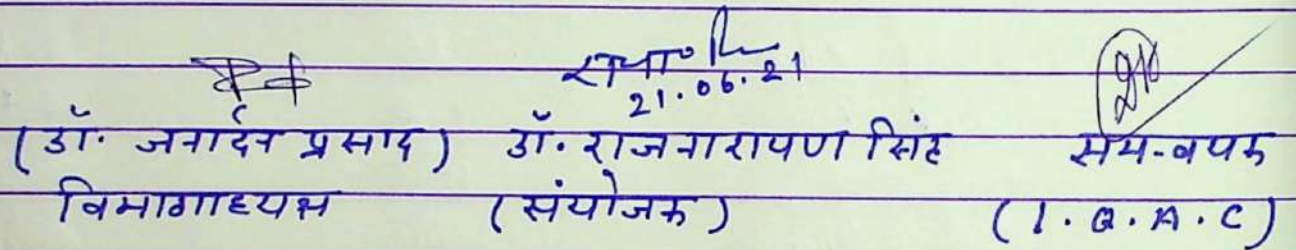 21.06.21
(डॉ. जनार्दन प्रसाद) डॉ. राजनारायण सिंह समन्वयक
विभागाध्यक्ष (संयोजक) (I.Q.A.C)